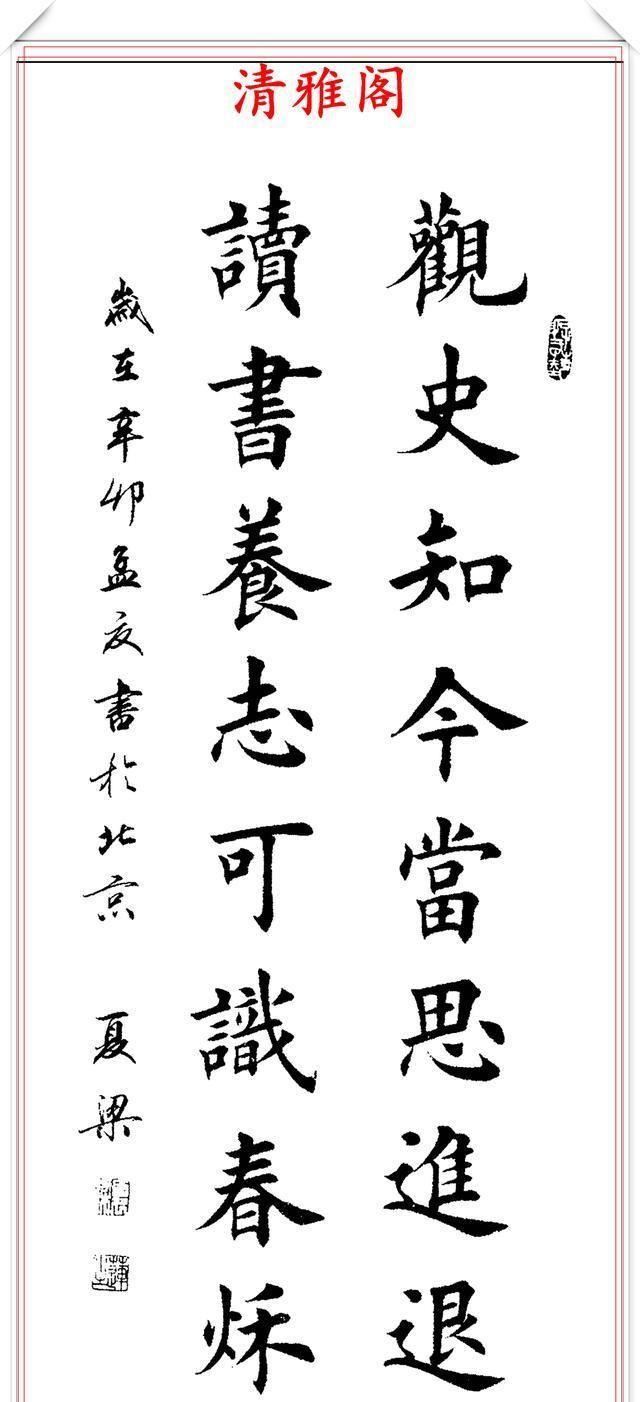 清雅阁
觀史知今當思進退
讀書養志可識春秌
歲在辛卯孟夏書於北京 夏梁